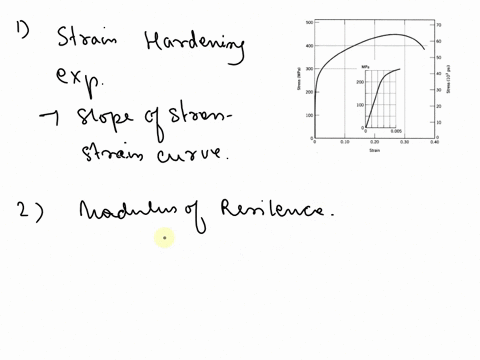 1) Strain Hardening
exp.
→ slope of stress-
strain curve.
2) Modulus of Resilence.
500
400
300
200
100
0
Stress (MPa)
MPa
200
100
0
0
0.005
70
60
50
40
30
20
10
0
Stress (10³ psi)
0
0.10
0.20
0.30
0.40
Strain